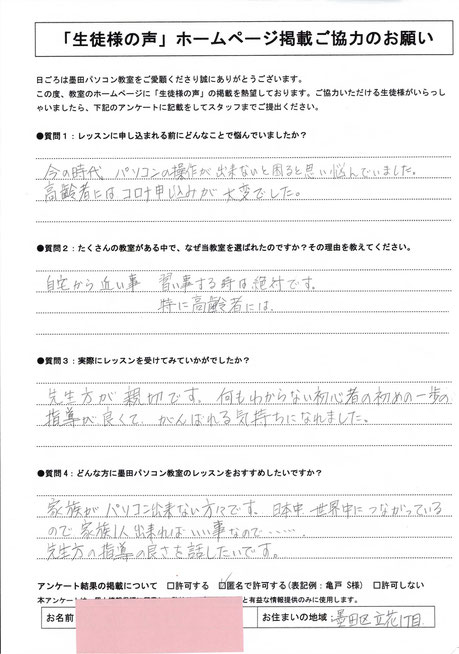 「生徒様の声」ホームページ掲載ご協力のお願い
日ごろは墨田パソコン教室をご愛顧くださり誠にありがとうございます。
この度、教室のホームページに「生徒様の声」の掲載を熱望しております。ご協力いただける生徒様がいらっし
ゃいましたら、下記のアンケートに記載をしてスタッフまでご提出ください。
●質問1：レッスンに申し込まれる前にどんなことで悩んでいましたか？
今の時代、パソコンの操作が出来ないと困ると思い悩んでいました。
高齢者にはコロナ申し込みが大変でした。
●質問2：たくさんの教室がある中で、なぜ当教室を選ばれたのですか？その理由を教えてください。
自宅から近い事 習い事する時は絶対です。
特に高齢者には、
●質問3：実際にレッスンを受けてみていかがでしたか？
先生方が親切です。何もわからない初心者の初めの一歩の
指導が良くて、がんばれる気持ちになれました。
●質問4：どんな方に墨田パソコン教室のレッスンをおすすめしたいですか？
家族がパソコン出来ない方々です。日本中 世界中につながっている
ので家族1人出来ればいい事なので……
先生方の指導の良さを話したいです。
アンケート結果の掲載について □許可する □匿名で許可する(表記例：亀戸 S様) □許可しない
本アンケートは、 と有益な情報提供のみに使用します。
お名前 お住まいの地域 墨田区立花1丁目